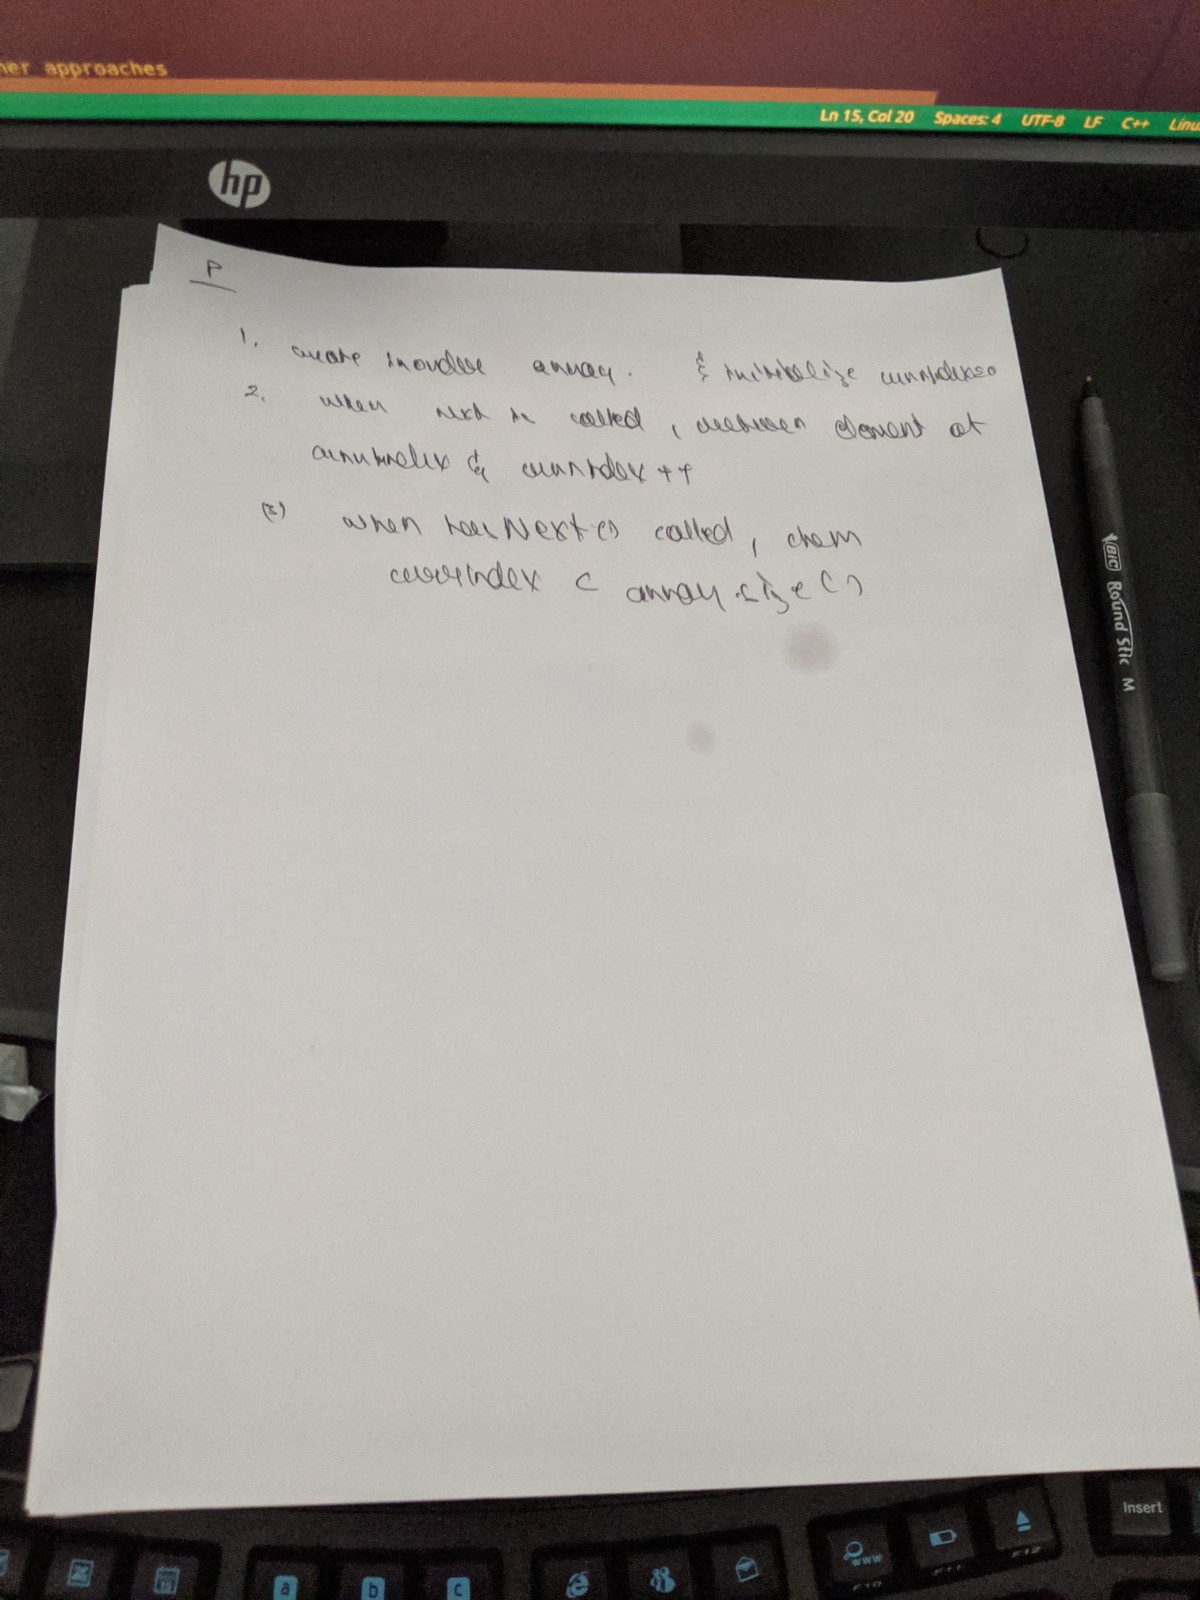 her approaches
Ln 15, Col 20 Spaces: 4 UTF-8 LF C++ Linu
hp
P
1. create inorder array. & initialize currindex=0
2. when next is called, return element at
currindex & currindex ++
(3) when hasNext() called, check
currindex < array.size()
BIC Round Stic M
Insert
www
F10 F11 F12
a b c